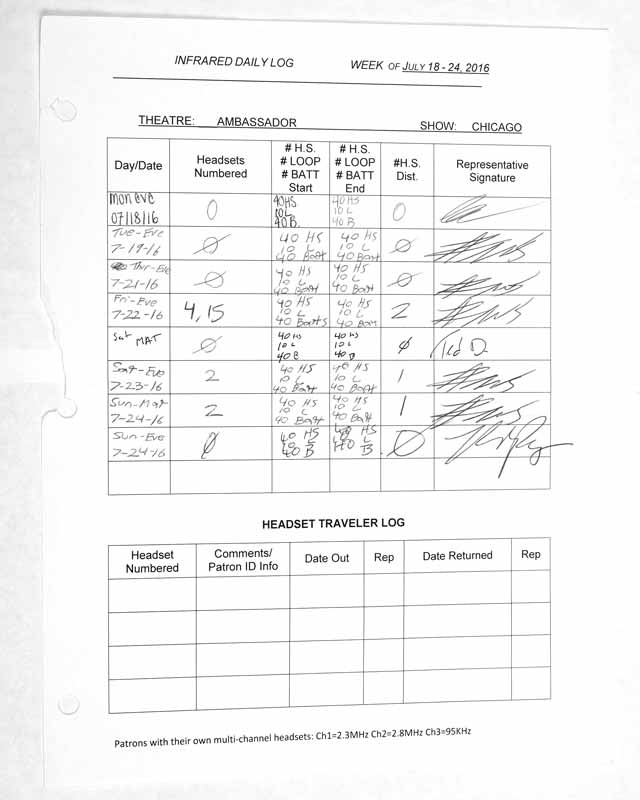 INFRARED DAILY LOG WEEK OF JULY 18 - 24, 2016
THEATRE: AMBASSADOR SHOW: CHICAGO
Day/Date Headsets Numbered # H.S. # LOOP # BATT Start # H.S. # LOOP # BATT End #H.S. Dist. Representative Signature
Mon eve 07/18/16 0 40 HS 10 L 40 B. 40 HS 10 L 40 B 0
Tue-Eve 7-19-16 Ø 40 HS 10 L 40 Batt 40 HS 10 L 40 Batt Ø
Thr-Eve 7-21-16 Ø 40 HS 10 L 40 Batt 40 HS 10 L 40 Batt Ø
Fri-Eve 7-22-16 4, 15 40 HS 10 L 40 Batts 40 HS 10 L 40 2
Sat MAT Ø 40 HS 10 L 40 B 40 HS 10 L 40 B Ø Ted D.
Sat-Eve 7-23-16 2 40 HS 10 L 40 Batt 40 HS 10 L 40 Batt 1
Sun-Mat 7-24-16 2 40 HS 10 L 40 Batt 40 HS 10 L 40 Batt 1
Sun-Eve 7-24-16 Ø 40 HS 10 L 40 B 40 HS L B. Ø
HEADSET TRAVELER LOG
Headset Numbered Comments/ Patron ID Info Date Out Rep Date Returned Rep
Patrons with their own multi-channel headsets: Ch1=2.3MHz Ch2=2.8MHz Ch3=95KHz